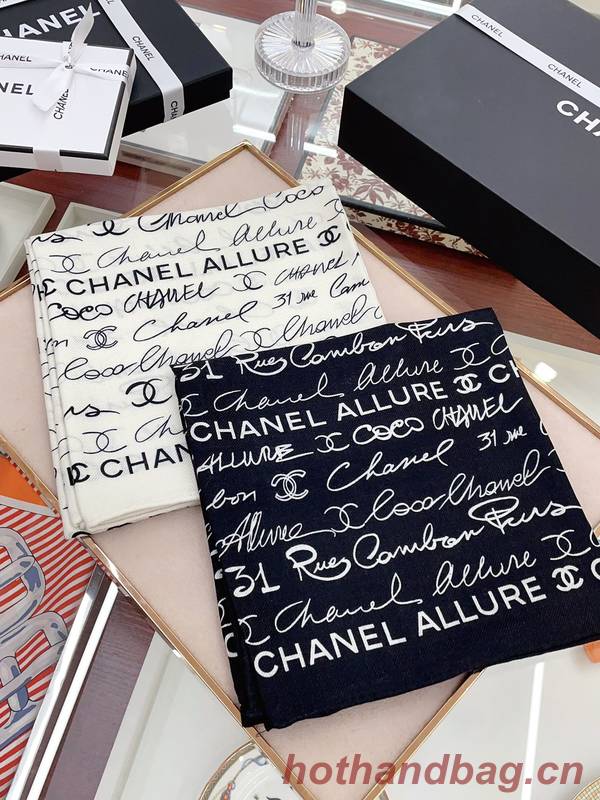 CHANEL
CHANEL
CHANEL
CHANEL
CHANEL
CHANEL
Chanel Coco
Chanel Allure
CHANEL ALLURE
COCO CHANEL CHANEL
Chanel 31 rue Cam
Coco Chanel Chanel
Chanel
CHAN
31 Rue Cambon Paris
Chanel Allure
CHANEL ALLURE C
ALLURE COCO CHANEL
bon Chanel 31 rue
Allure Coco Chanel
31 Rue Cambon Paris
Chanel Allure
CHANEL ALLURE
hothandbag.cn